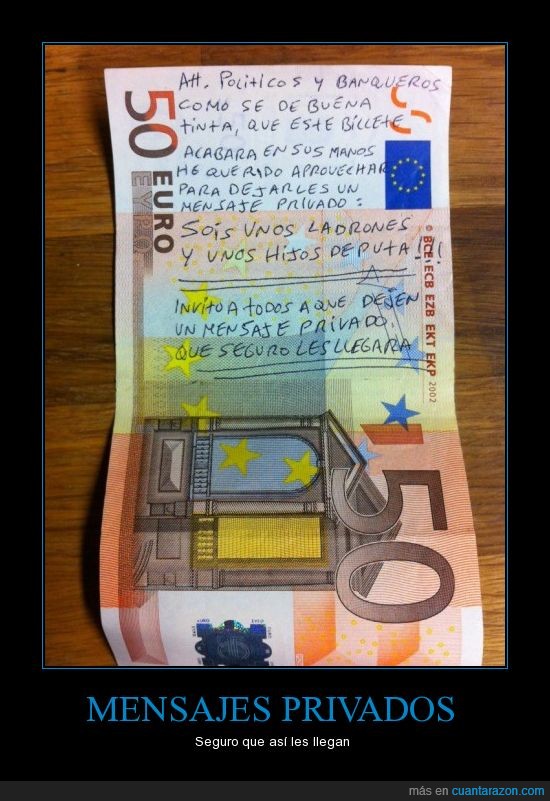 Att. Politicos y BANQUEROS
COMO SE DE BUENA
tinta, QUE ESTE BILLETE
ACABARA EN SUS MANOS
HE QUERIDO APROVECHAR
PARA DEJARLES UN
MENSAJE PRIVADO:
SOIS UNOS LADRONES
Y UNOS HIJOS DE PUTA!!!!
INVITO A TODOS A QUE DEJEN
UN MENSAJE PRIVADO
QUE SEGURO LES LLEGARA
50 EURO
ΕΥΡΩ
© BCE ECB EZB EKT EKP 2002
50
MENSAJES PRIVADOS
Seguro que así les llegan
más en cuantarazon.com